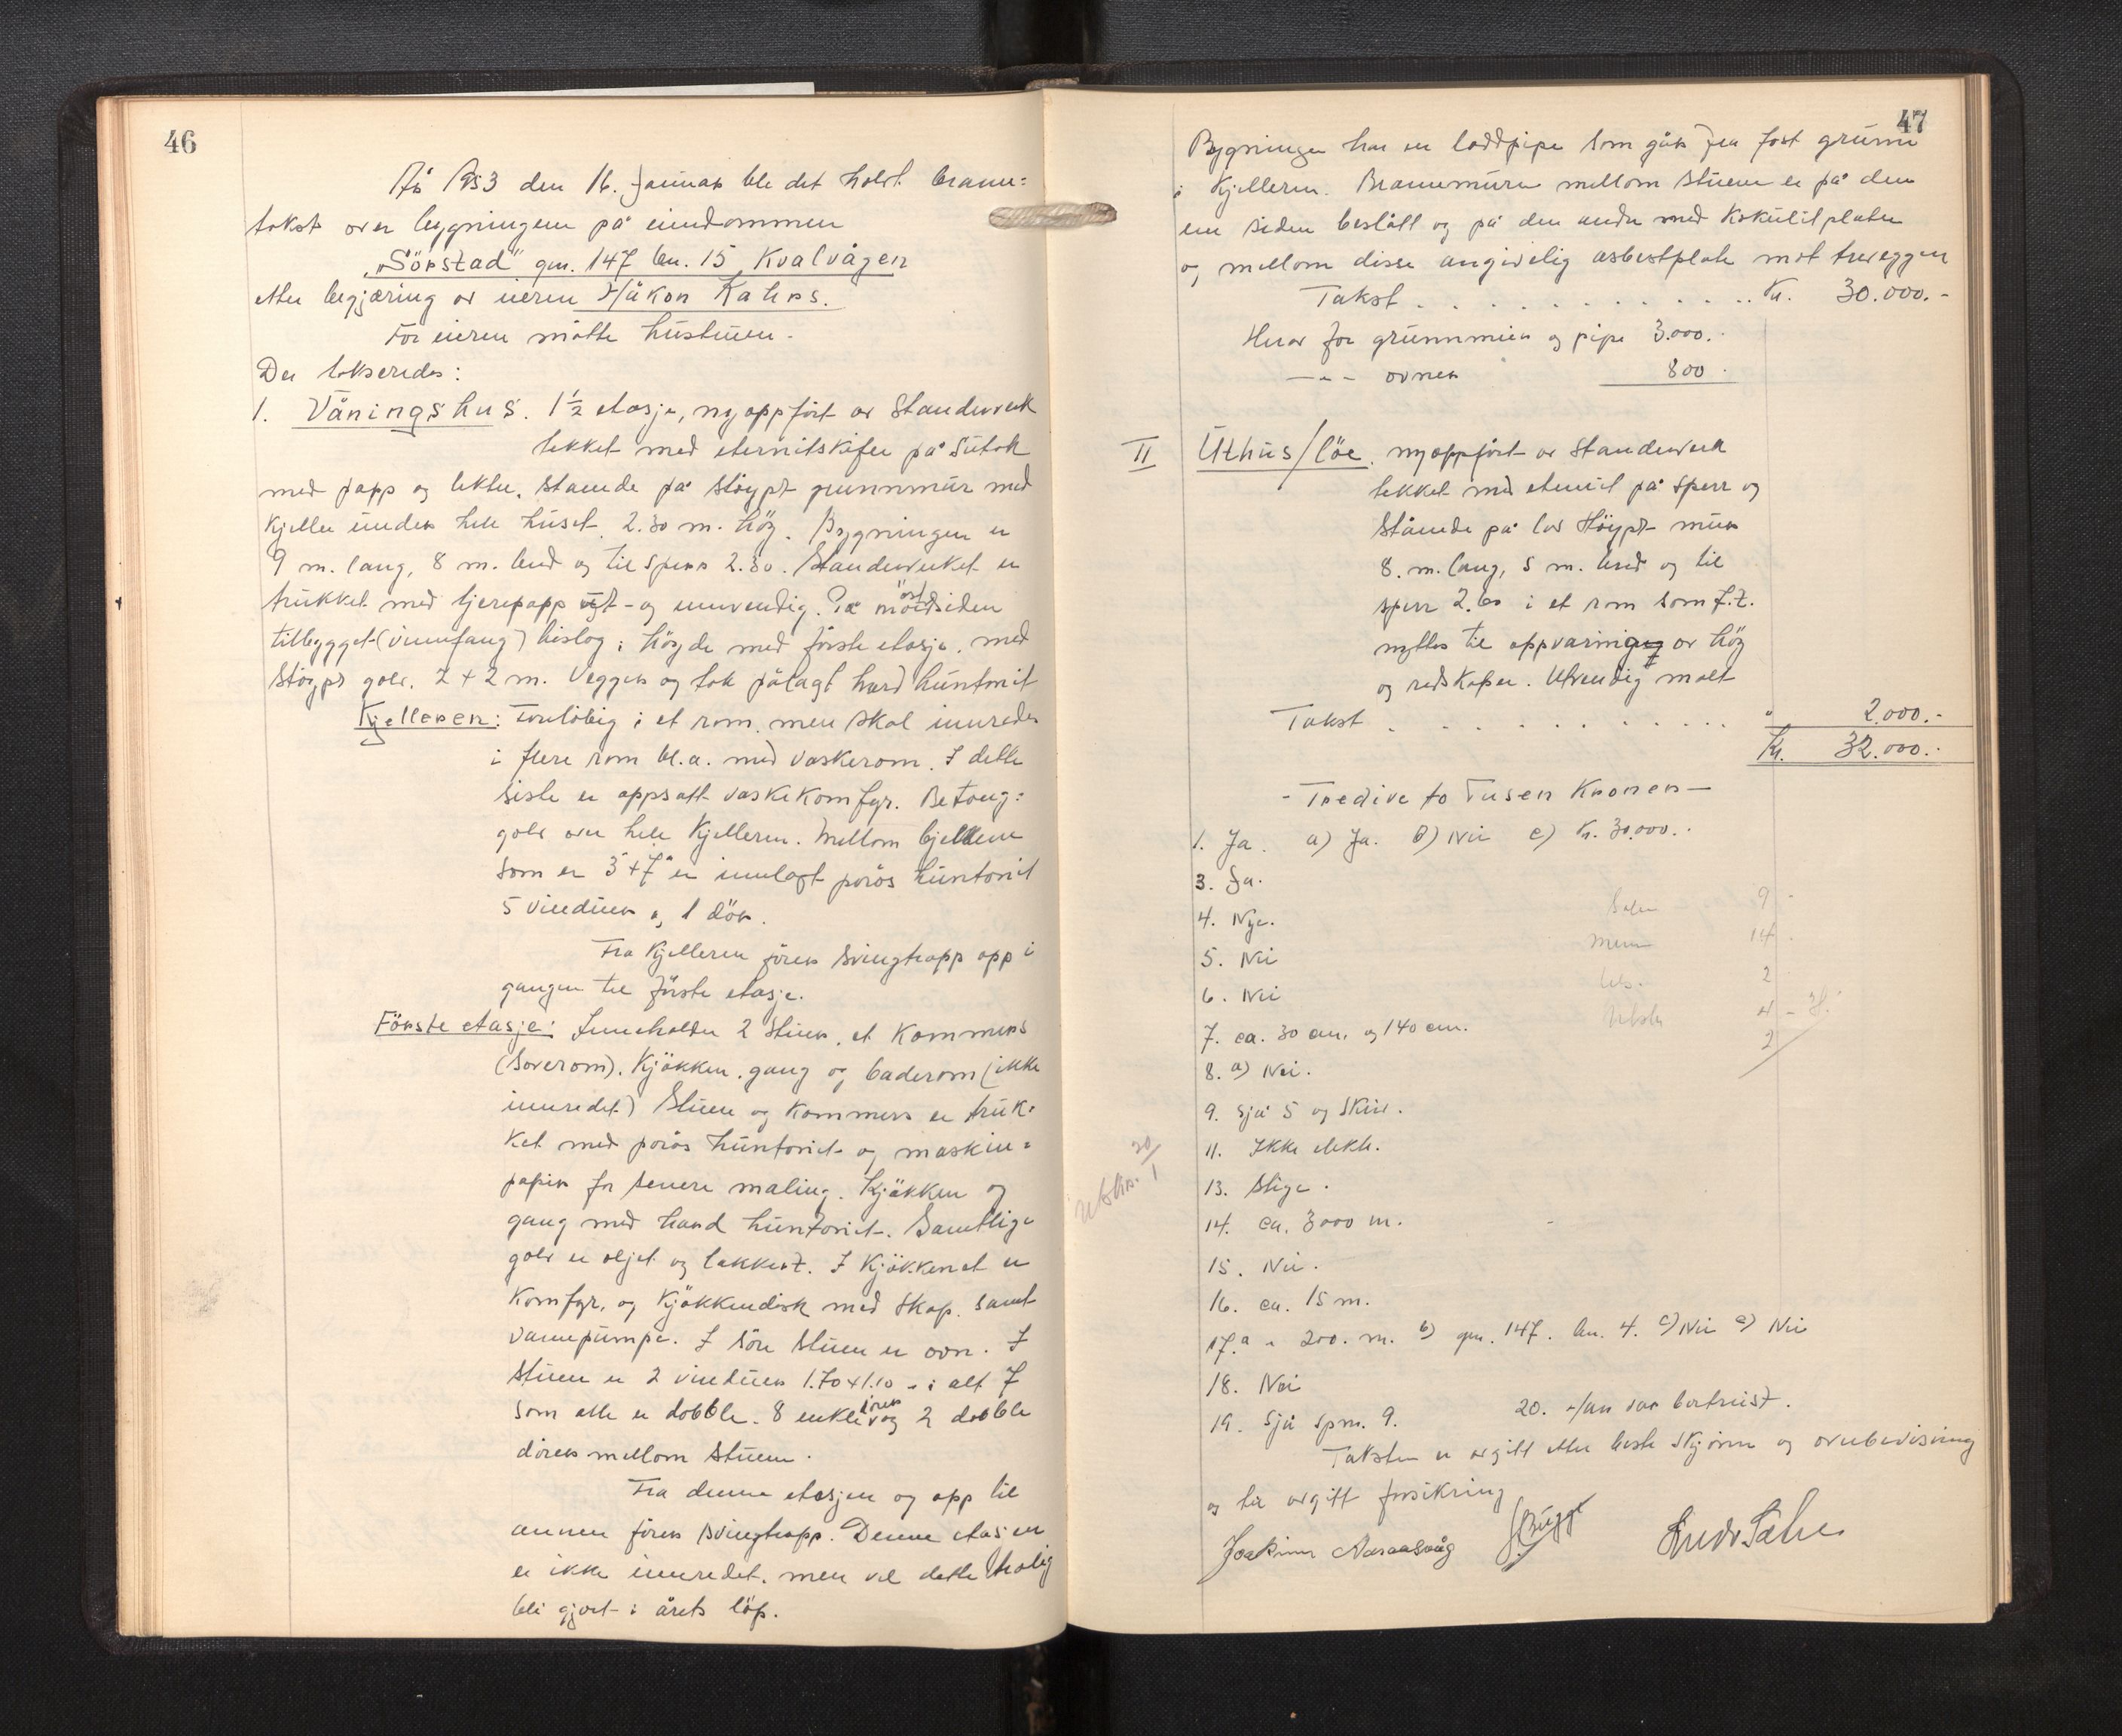 46
År 1953 den 16. januar ble det holdt brann=
takst over bygningene på eiendommen
„Sörstad" gnr. 147 bn. 15, Kvalvågen
etter begjæring av eieren Håkon Kahrs.
For eieren møtte hustruen.
Der takseredes:
1. Våningshus. 1½ etasje, nyoppført av standerverk
tekket med eternitskifer på sutak
med papp og lekter, stående på støypt grunnmur med
kjeller under hele huset, 2.30 m. høg. Bygningen er
9 m. lang, 8 m. bred og til sperr 2.80. Standerverket er
trukket med tjærepapp ut- og innvendig. På öst siden
tilbygget (vinnfang) bislag i høyde med første etasje, med
støypt golv. 2 + 2 m. Vegger og tak pålagt hard huntonit
Kjelleren: Foreløbig i et rom, men skal innredes
i flere rom bl.a. med vaskerom. I dette
siste er oppsatt vaskekomfyr. Betong=
golv over hele kjelleren. Mellom bjelkene
som er 3" + 7" er innlagt porøs huntonit
5 vinduer og 1 dör.
Fra kjelleren fører svingtrapp opp i
gangen til første etasje.
Förste etasje: Inneholder 2 stuer, et kommers
(soverom), kjøkken, gang og baderom (ikke
innredet) Stuene og kommers er truk=
ket med porøs huntonit og maskin=
papir for senere maling. Kjøkken og
gang med hard huntonit. Samtlige
golv er oljet og lakkert. I kjøkkenet er
komfyr, og kjøkkendisk med skap, samt
vannpumpe. I søre stuen er ovn. I
stuen er 2 vinduer 1.70 x 1.10 - i alt 7
som alle er dobble. 8 enkle dörer og 2 dobble
dører mellom stuene.
Fra denne etasjen og opp til
annen fører svingtrapp. Denne etasjen
er ikke innredet, men vil dette trolig
bli gjort i årets løp.
47
Bygningen har en loddpipe som går fra fast grunn
i kjelleren. Brannmuren mellom stuene er på den
ene siden beslått og på den andre med kokulitplater
og mellom disse angivelig asbestplate mot treveggen
Takst . . . . . . . . . . . . . Kr. 30.000.-
Herav for grunnmur og pipe 3.000.-
- " - ovner 800.-
II Uthus/löe, nyoppført av standerverk
tekket med eternit på sperr og
stående på lav støypt mur
8. m. lang, 5 m. bred og til
sperr 2.60 i et rom som f.t.
nyttes til oppvaring av høy
og redskaper. Utvendig malt
Takst . . . . . . . . . . . " 2.000.-
Kr. 32.000.-
- Tredive to Tusen Kroner -
1. Ja. a) Ja. b) Nei c) Kr. 30.000.-
3. Ja.
4. Nye.
5. Nei
6. Nei
7. ca. 30 cm. og 140 cm.
8. a) Nei.
9. Sjå 5 og skiv.
11. Ikke elektr.
13. Stige.
14. ca. 3000 m.
15. Nei.
16. ca. 15 m.
17. a - 200. m. b) gnr. 147. bn. 4. c) Nei e) Nei
18. Nei
19. Sjå spm. 9. 20. Han var bortreist.
Taksten er avgitt etter beste skjønn og overbevisning
og til avgitt forsikring
Joakim
9
14
2
4
2
20/1